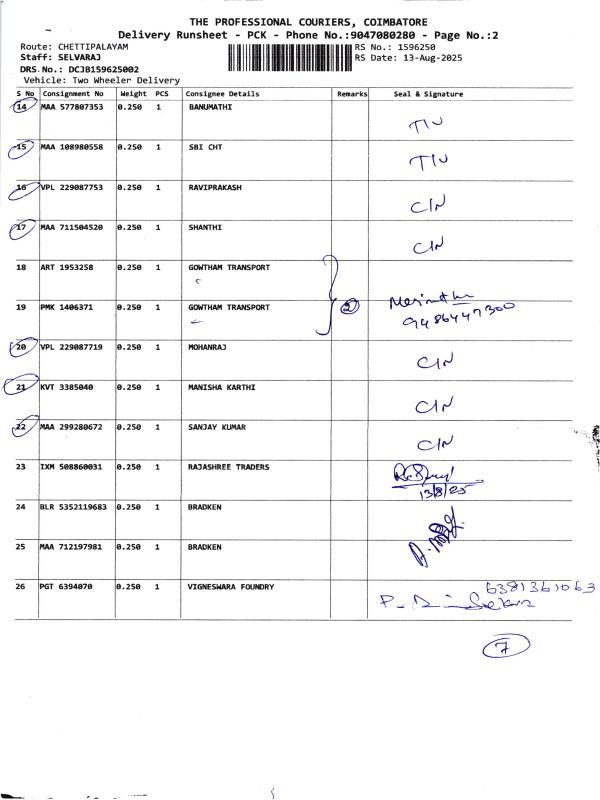 THE PROFESSIONAL COURIERS, COIMBATORE
Delivery Runsheet - PCK - Phone No.:9047080280 - Page No.:2
Route: CHETTIPALAYAM RS No.: 1596250
Staff: SELVARAJ RS Date: 13-Aug-2025
DRS.No.: DCJB159625002
Vehicle: Two Wheeler Delivery
S No Consignment No Weight PCS Consignee Details Remarks Seal & Signature
14 MAA 577807353 0.250 1 BANUMATHI TIU
15 MAA 108980558 0.250 1 SBI CHT TIU
16 VPL 229087753 0.250 1 RAVIPRAKASH CIN
17 MAA 711504520 0.250 1 SHANTHI CIN
18 ART 1953258 0.250 1 GOWTHAM TRANSPORT
19 PMK 1406371 0.250 1 GOWTHAM TRANSPORT 2 9486447300
20 VPL 229087719 0.250 1 MOHANRAJ CIN
21 KVT 3385040 0.250 1 MANISHA KARTHI CIN
22 MAA 299280672 0.250 1 SANJAY KUMAR CIN
23 IXM 508860031 0.250 1 RAJASHREE TRADERS 13/8/25
24 BLR 5352119683 0.250 1 BRADKEN
25 MAA 712197981 0.250 1 BRADKEN
26 PGT 6394070 0.250 1 VIGNESWARA FOUNDRY 6381361063
7